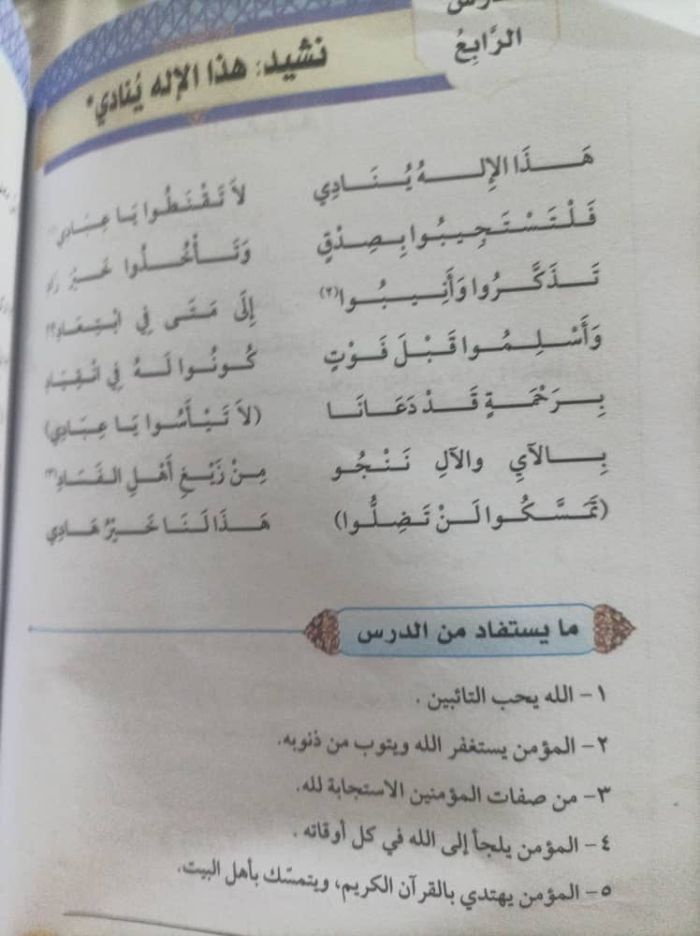 الرَّابِعُ
نشيد: هذا الإله يُنادي*
هَـذَا الإِلـهُ يُـنَـادِي لاَ تَـقْـنَطُوا يَـا عِبَادِي
فَـلْـتَـسْـتَـجِـيبُـوا بِـصِـدْقٍ وَتَـأْخُـذُوا خَـيْـرَ زَادِ
تَـذَكَّـرُوا وَأَنِـيـبُـوا(٢) إِلَى مَـتَـى فِي ابْـتِـعَـادِ
وَأَسْـلِـمُـوا قَـبْـلَ فَـوْتٍ كُـونُـوا لَـهُ فِي انْـقِيَـادِ
بِـرَحْـمَـةٍ قَـدْ دَعَـانَـا (لاَ تَـيْـأَسُـوا يَـا عِـبَـادِي)
بِـالآيِ والآلِ نَـنْـجُـو مِـنْ زَيْـغِ أَهْـلِ الـفَـسَـادِ(٣)
(تَمَـسَّـكُـوا لَـنْ تَـضِـلُّوا) هَـذَا لَـنَـا خَـيْـرُ هَـادِي
ما يستفاد من الدرس
١- الله يحب التائبين .
٢- المؤمن يستغفر الله ويتوب من ذنوبه.
٣- من صفات المؤمنين الاستجابة لله.
٤- المؤمن يلجأ إلى الله في كل أوقاته .
٥- المؤمن يهتدي بالقرآن الكريم، ويتمسّك بأهل البيت.